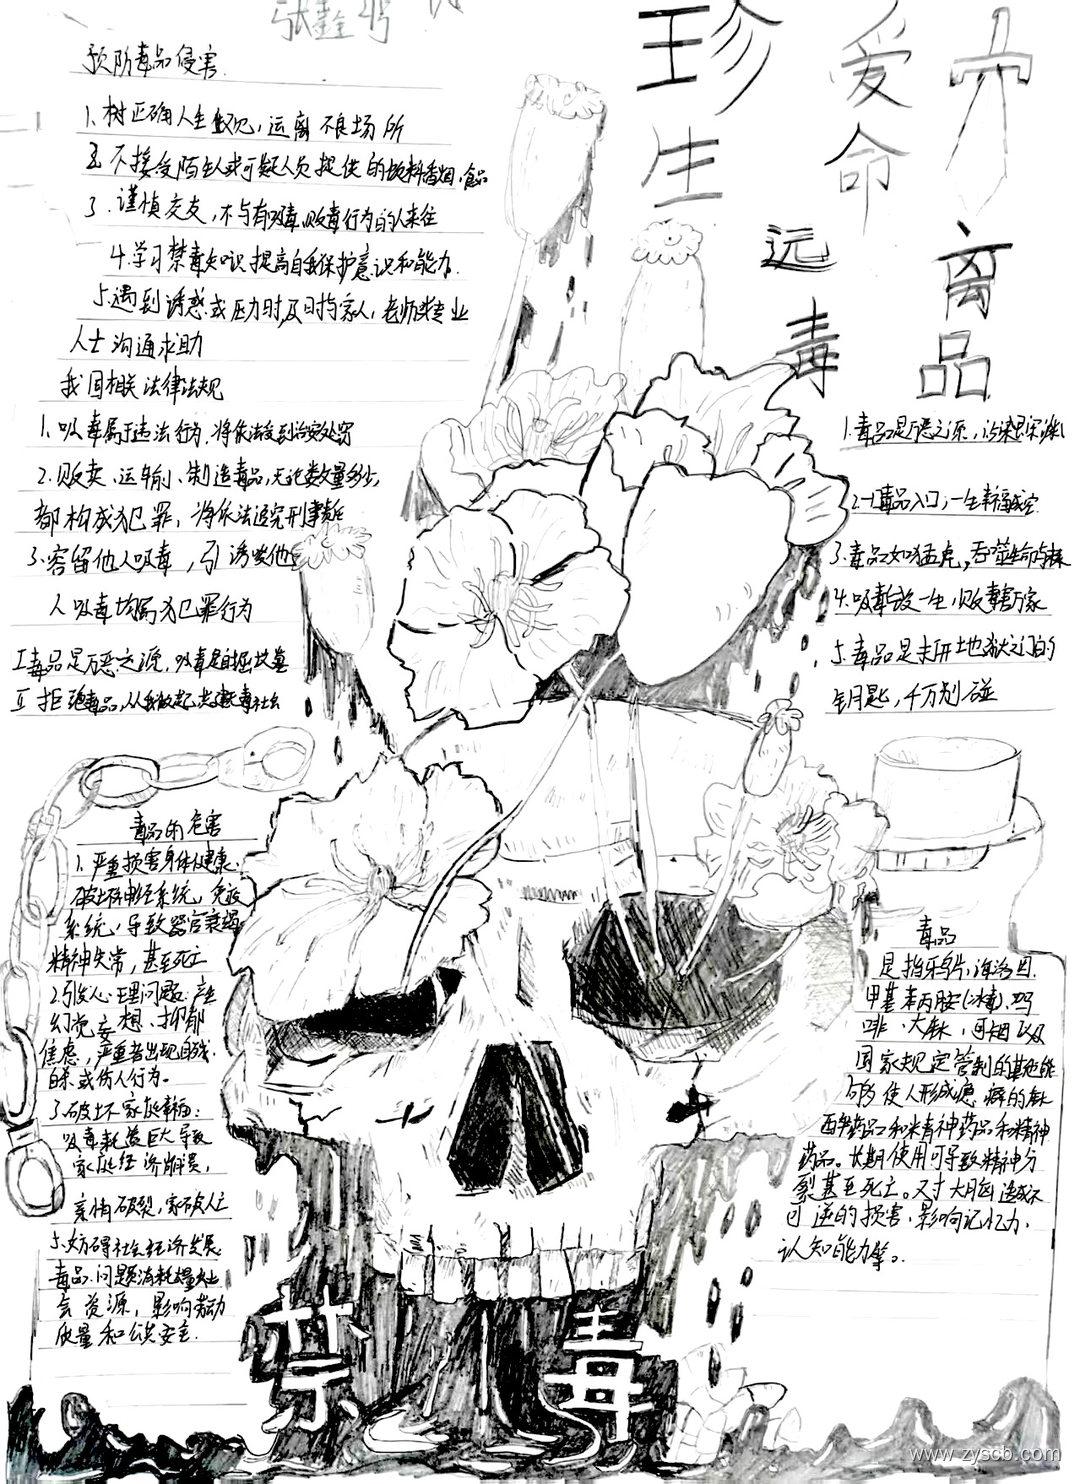 珍爱生命
远离毒品
预防毒品侵害
1、树正确人生观,远离不良场所
2 不接受陌生人或可疑人员提供的饮料香烟、食品
3、谨慎交友,不与有吸毒、贩毒行为的人来往
4.学习禁毒知识,提高自我保护意识和能力.
5.遇到诱惑或压力时,及时与家人、老师或专业
人士沟通求助
我国相关法律法规
1、吸毒属于违法行为,将依法受到治安处罚
2、贩卖、运输、制造毒品,无论数量多少,
都构成犯罪,将依法追究刑事责任
3、容留他人吸毒,引诱他
人吸毒均属犯罪行为
I毒品是万恶之源,吸毒是自掘坟墓
II 拒绝毒品,从我做起,共建无毒社会
1.毒品是万恶之源,沾染即深渊
2.一口毒品入口,一生幸福成空
3.毒品如猛虎,吞噬生命与
4.吸毒毁一生,贩毒害万家
5.毒品是未开地狱之门的
钥匙,千万别碰
毒品的危害
1.严重损害身体健康:
破坏神经系统、免疫
系统,导致器官衰竭
精神失常,甚至死亡
2.引发心理问题:产
幻觉妄想、抑郁
焦虑,严重者出现自残、
自杀或伤人行为。
3.破坏家庭幸福:
吸毒耗资巨大导致
家庭经济崩溃,
亲情破裂,家破人亡
5、妨碍社会经济发展
毒品问题消耗大量社
会资源,影响劳动
质量和公共安全.
毒品
是指鸦片,海洛因、
甲基苯丙胺(冰毒)、吗
啡、大麻、可卡因以及
国家规定管制的其他能
够使人形成瘾癖的麻
醉药品和精神药品和精神
药品。长期使用可导致精神分
裂甚至死亡。对大脑造成不
可逆的损害,影响记忆力、
认知能力等。
禁毒
www.zyscb.com